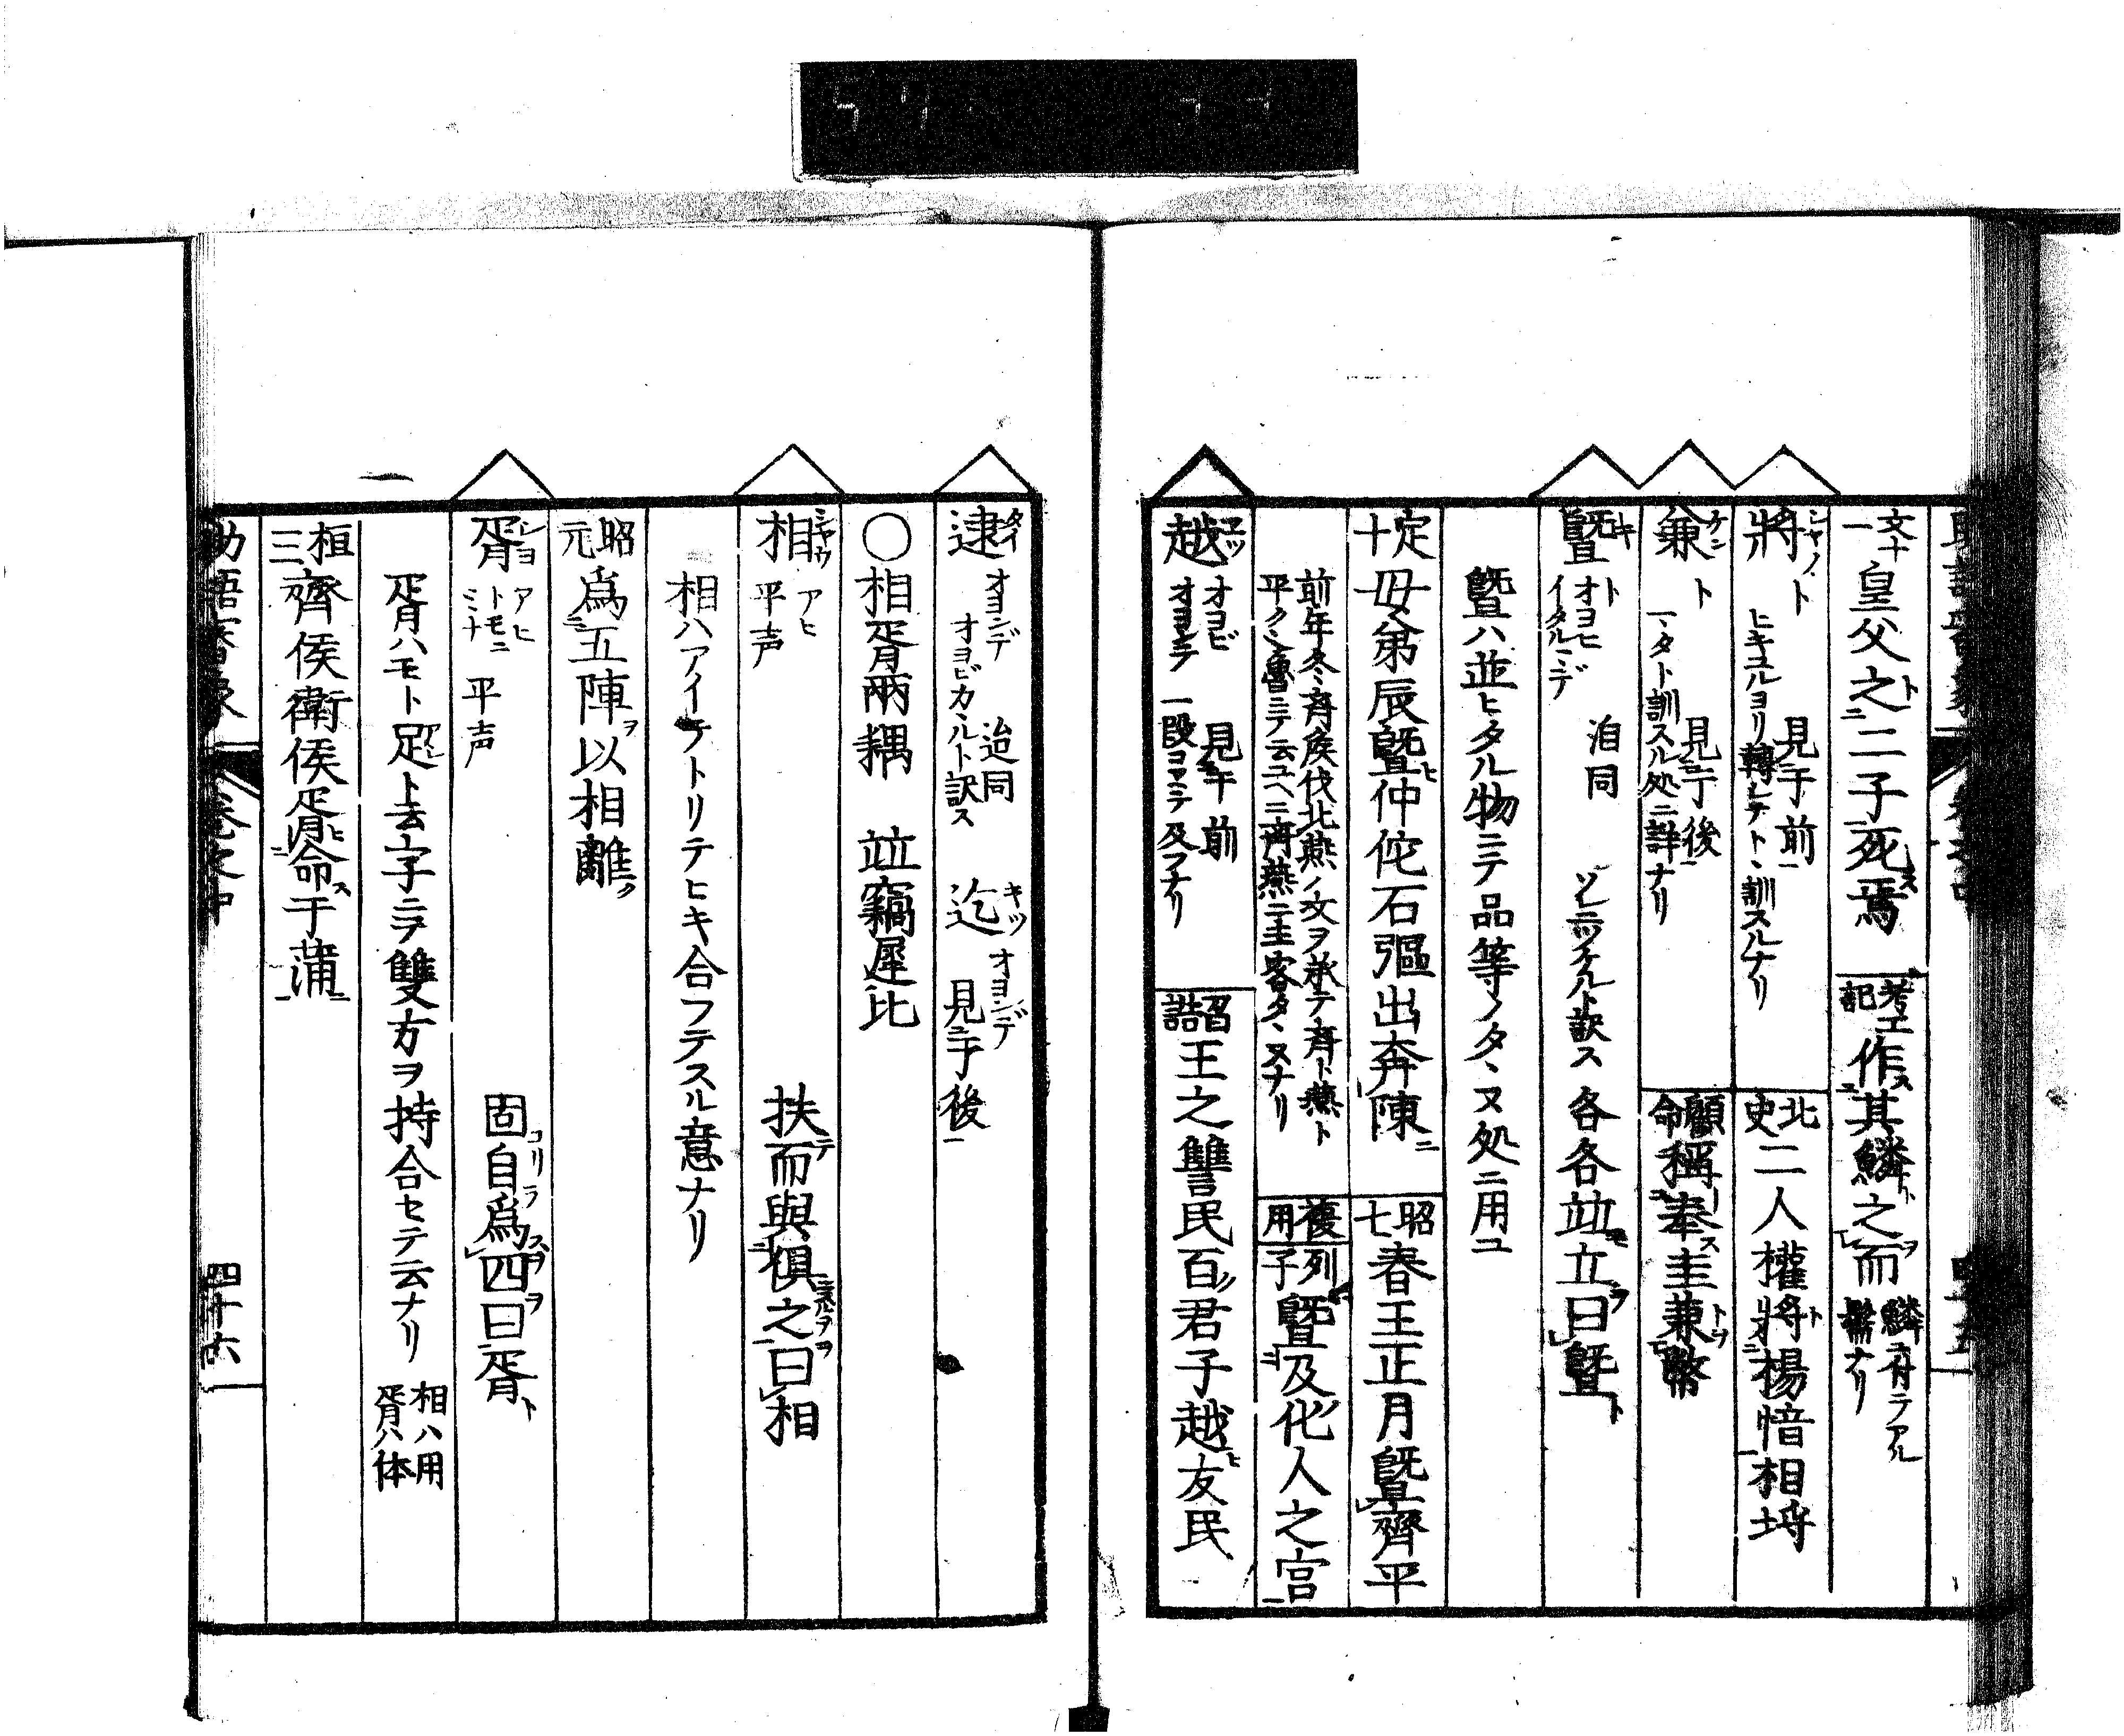 文十一 皇父之二子死焉 考工記 作其鱗之而 鱗ニ有テアル 鬚ナリ
將 シヤノ ト ヒキユルヨリ轉シテト訓スルナリ 見于前 北史 二人權將楊愔相埒
兼 ケン ト 一ヽタト訓スル処ニ詳ナリ 見于後 顧命 稱奉圭兼幣
曁 キ ト オヨヒ イタルマデ 洎同 ソレニツケルト訳ス 各各竝立曰曁
曁ハ並ヒタル物ニテ品等ノタヽヌ処ニ用ユ
定十 母弟辰曁仲佗石彄出奔陳 昭七 春王正月曁齊平
前年冬齊侯伐北燕ノ文ヲ承テ齊ト燕ト平クヽ魯ニテ云ユヘニ齊燕ニ主客タヽヌナリ 複用 列子 曁及化人之宮
越 エツ オヨビ オヨンテ 見于前 一段コヘテ及フナリ 召誥 王之讐民百君子越友民
逮 タイ オヨンデ オヨビカヽルト訳ス 迨同 迄 キツ オヨンデ 見于後
〇相胥兩耦 竝竊遲比
相 シヤウ アヒ 平声 扶而與倶之曰相
相ハアイテトリテヒキ合フテスル意ナリ
昭元 爲五陳以相離
胥 シヨ アヒ トモニ ミナ 平声 固自爲四曰胥
胥ハモト足ト云字ニテ雙方ヲ持合セテ云ナリ 相ハ用 胥ハ体
桓三 齊侯衛侯胥命于蒲
助語審象 卷之中 四十六